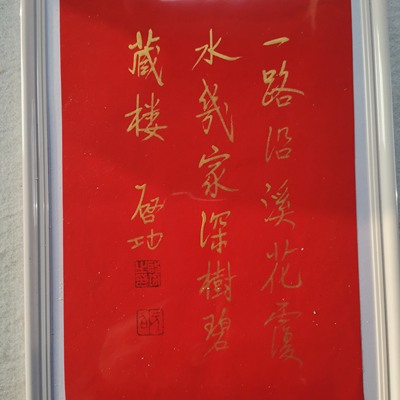 一路沿溪花覆
水幾家深樹碧
藏楼
啓功